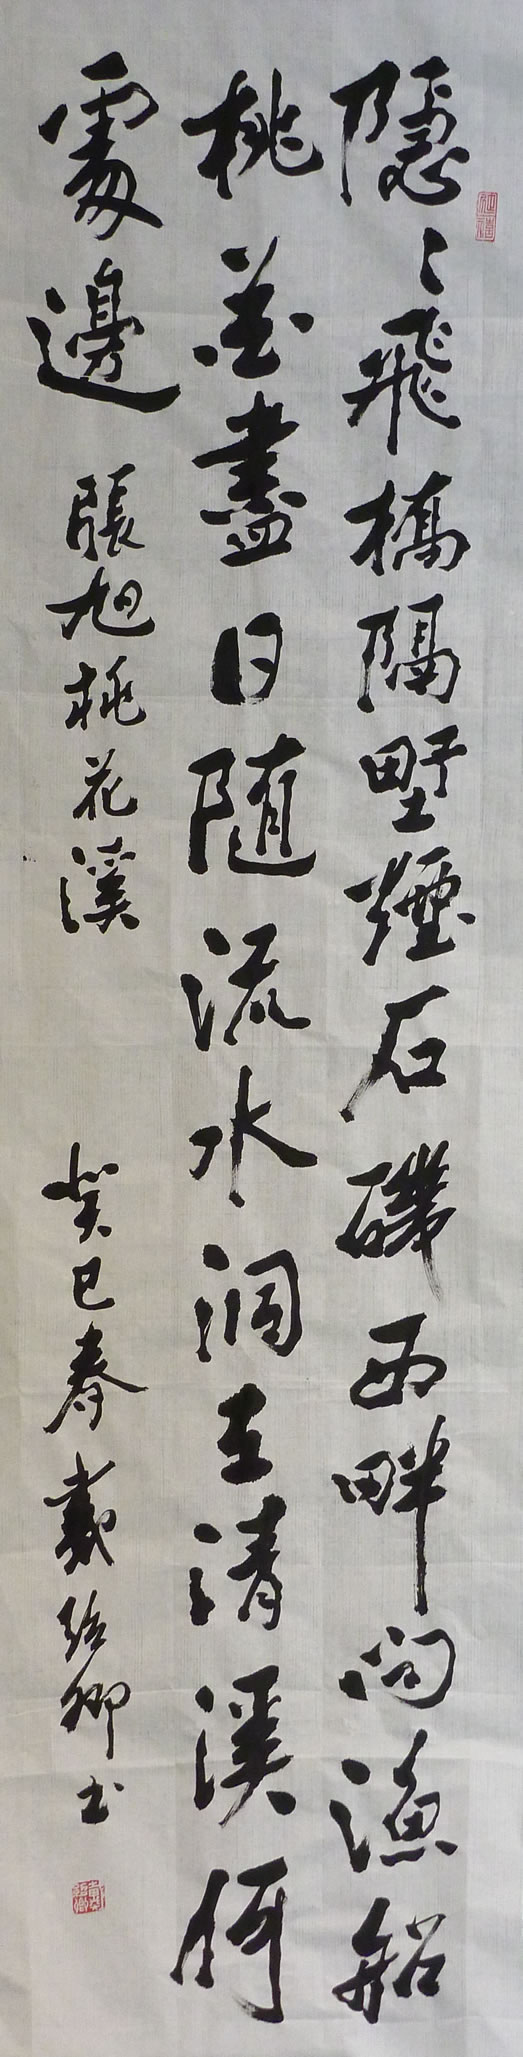 隱〻飛橋隔野煙石磯西畔問漁船
桃花盡日隨流水洞在清溪何
處邊 張旭桃花溪 癸巳春戴紹卿书